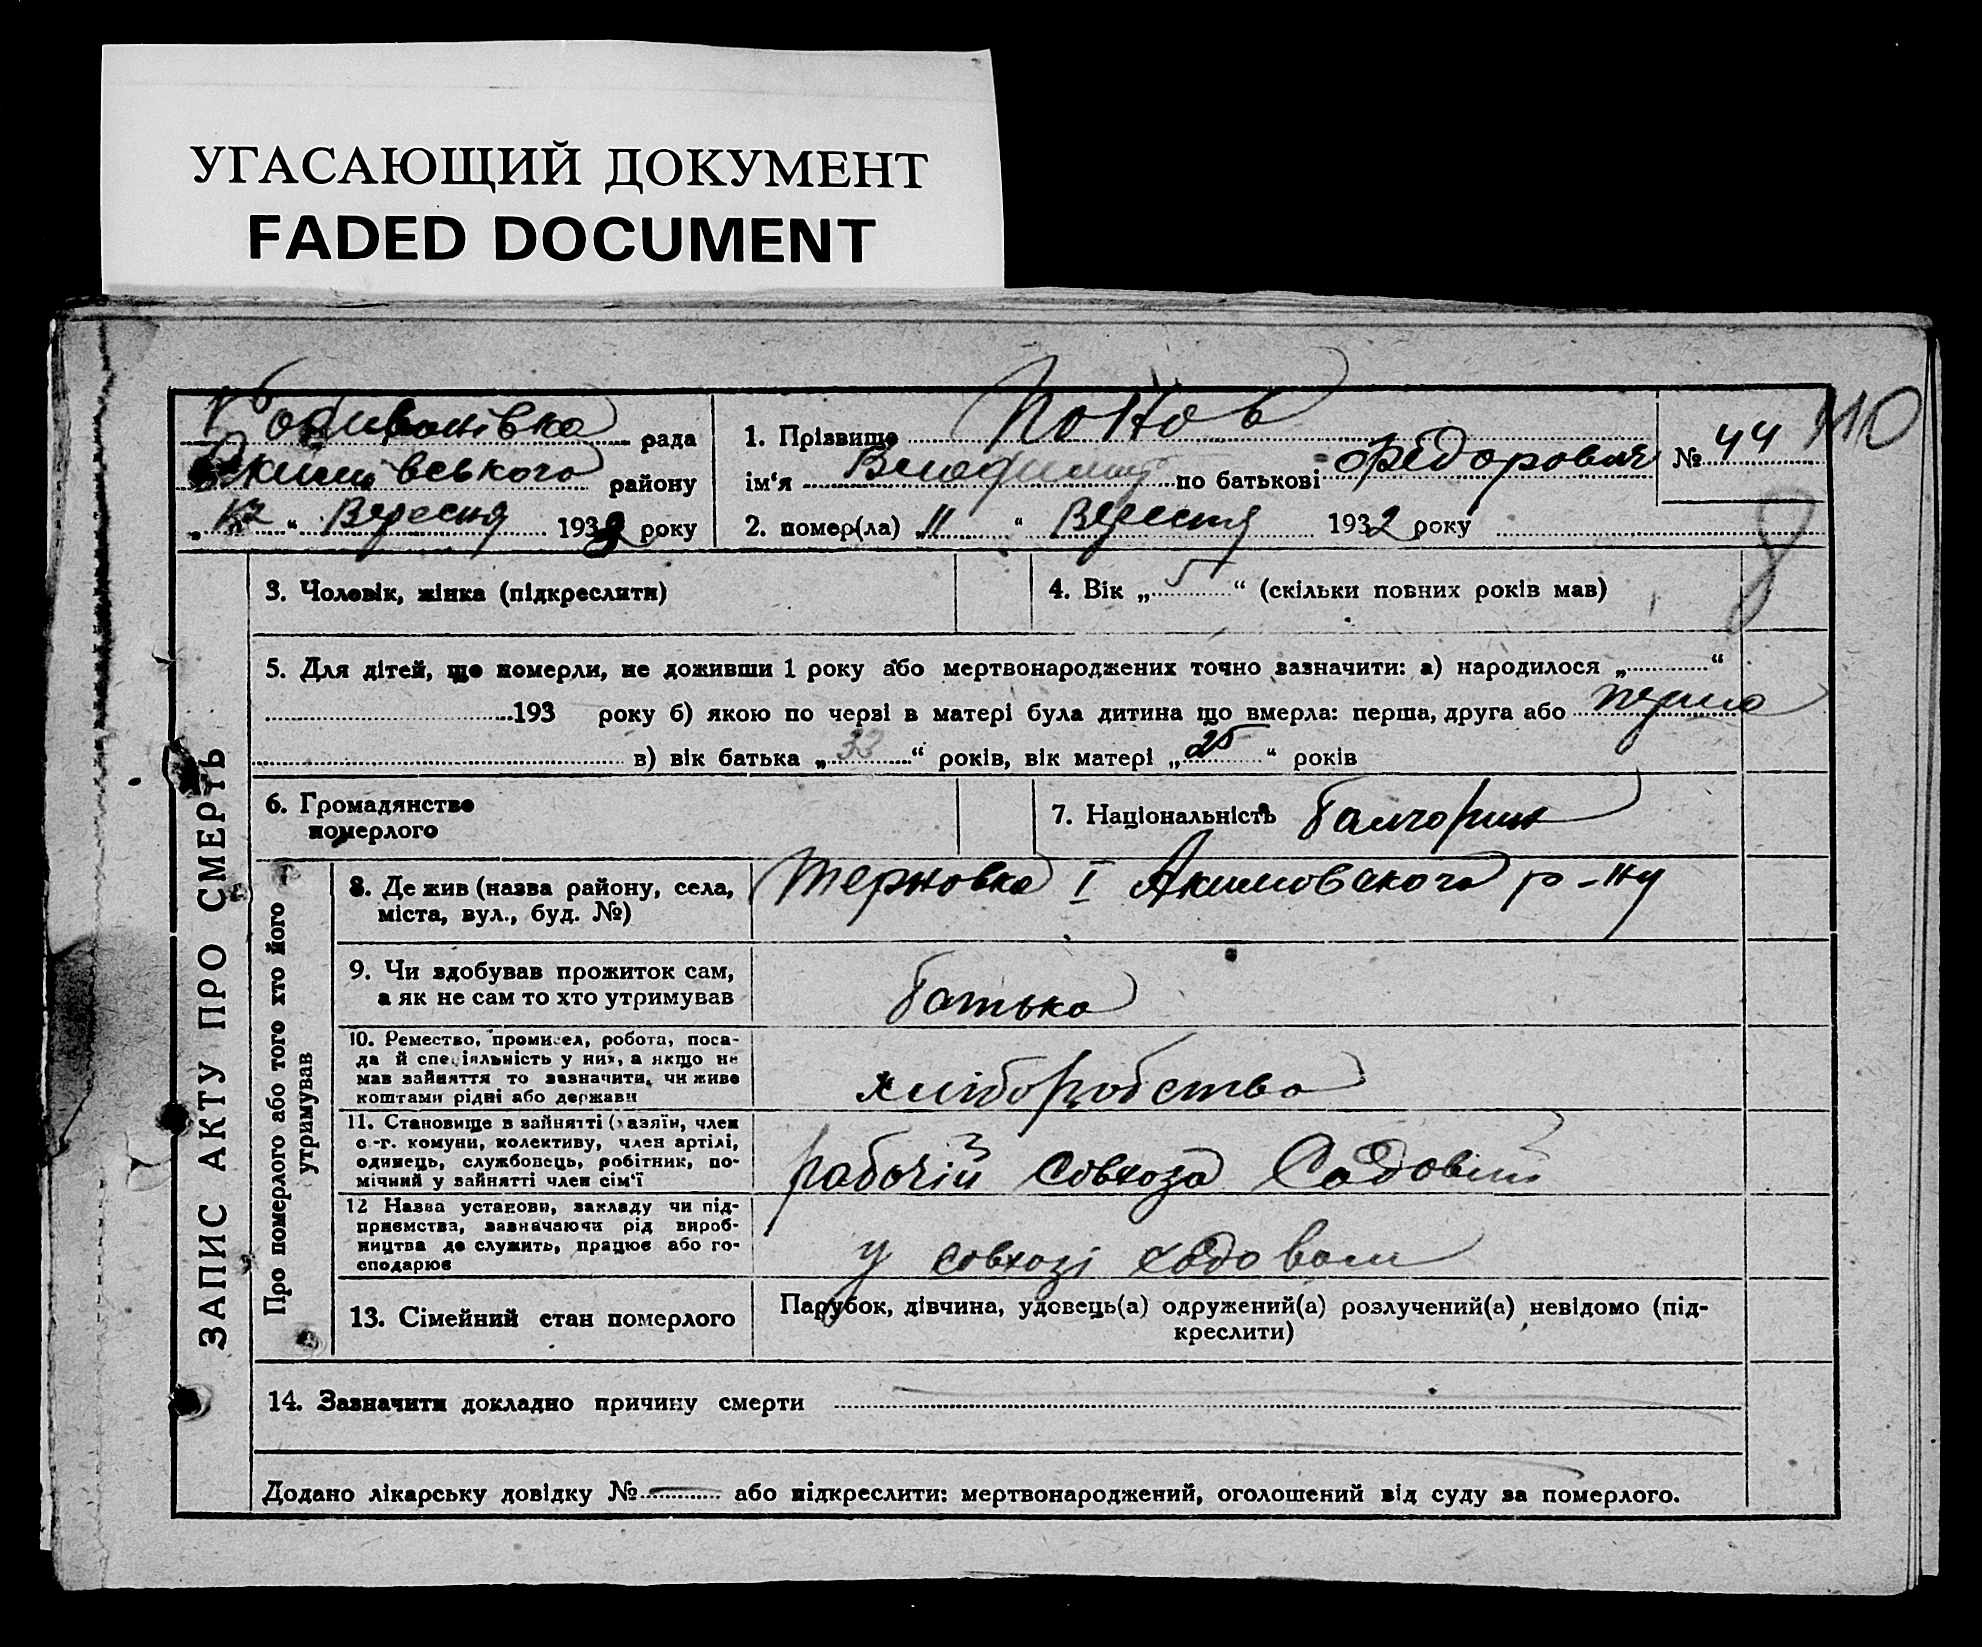 УГАСАЮЩИЙ ДОКУМЕНТ
FADED DOCUMENT
рада
вського району
„ “ Вересня 193 року
1. Прізвище
ім‘я по батькові Федорович
№ 44
110
2. помер(ла) „11 “ Вересня 1932 року
3. Чоловік, жінка (підкреслити)
4. Вік „5“ (скільки повних років мав)
5. Для дітей, що померли, не доживши 1 року або мертвонароджених точно зазначити: а) народилося „ “
193 року б) якою по черзі в матері була дитина що вмерла: перша, друга або перша
в) вік батька „33“ років, вік матері „25“ років
6. Громадянство
померлого
7. Національність болгорин
ЗАПИС АКТУ ПРО СМЕРТЬ
Про померлого або того хто його
утримував
8. Де жив (назва району, села,
міста, вул., буд. №)
Терновка I Акимовского р-ну
9. Чи здобував прожиток сам,
а як не сам то хто утримував
батько
10. Ремество, промисел, робота, поса-
да й спеціяльність у них, а якщо не
мав зайняття то зазначити, чи живе
коштами рідні або держави
хліборобство
11. Становище в зайнятті (хазяїн, член
с.-г. комуни, колективу, член артілі,
одинець, службовець, робітник, по-
мічний у зайнятті член сім‘ї
рабочій совхоза
12 Назва установи, закладу чи під-
приємства, зазначаючи рід вироб-
ництва де служить, працює або го-
сподарює
у совхозі
13. Сімейний стан померлого
Парубок, дівчина, удовець(а) одружений(а) розлучений(а) невідомо (під-
креслити)
14. Зазначити докладно причину смерти
Додано лікарську довідку № або підкреслити: мертвонароджений, оголошений від суду за померлого.